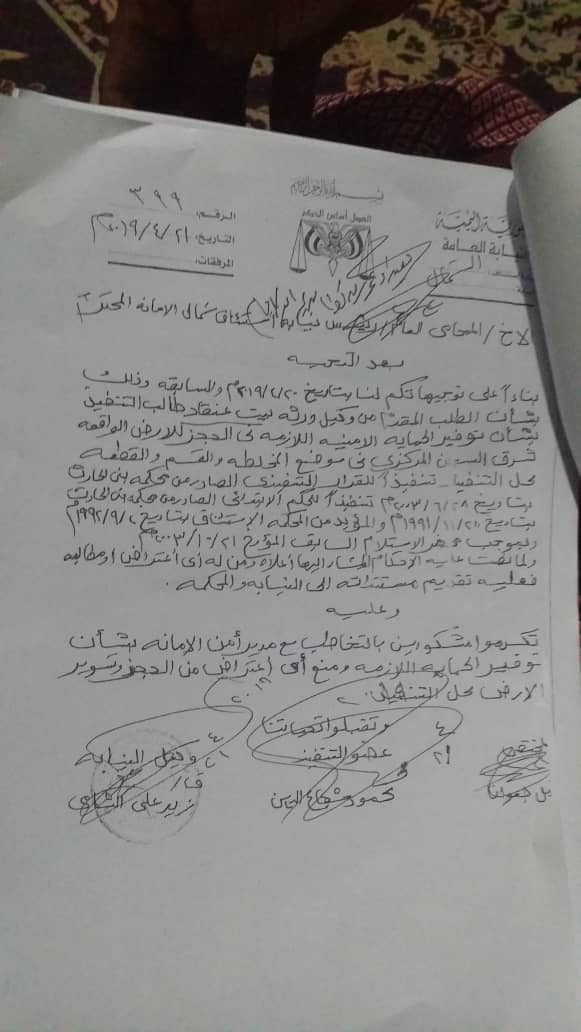 بسم الله الرحمن الرحيم
العدل أساس الحكم
النيابة العامة
الرقم: ٣٩٩
التاريخ: ٢١/٤/٢٠١٩م
المرفقات:
الاخ/ المحامي العام نيابة استئناف شمال الامانه المحترم
بعد التحية
بناءاً على توجيهاتكم لنا بتاريخ والسابقه وذلك
بشأن الطلب المقدم من وكيل ورثه بيت عنقاد طالب التنفيذ
بشأن توفير الحمايه الامنيه اللازمه في الحجز للارض الواقعه
شرق السجن المركزي في موضع والقسم والقطعه
محل التنفيذ تنفيذاً للقرار التنفيذي الصادر من محكمه بني الحارث
بتاريخ ٢٨/٦/٢٠٠٣م تنفيذاً للحكم الابتدائي الصادر من محكمه بني الحارث
بتاريخ ٢١/١١/١٩٩١م والمؤيد من المحكمه الإستئناف بتاريخ ٢/٩/١٩٩٢م
وبموجب محضر الاستلام السابق المؤرخ
ولما قضت عليه الاحكام المشار اليها أعلاه ومن له أي اعتراض أو مطالبه
فعليه تقديم مستنداته الى النيابه والمحكمه.
وعليه
تكرموا مشكورين بالتخاطب مع مدير أمن الامانه بشأن
توفير الحمايه اللازمه ومنع أي إعتراض من الحجز وتسوير
الارض محل التنفيذ.
وتقبلوا تحياتنا
عضو التنفيذ
محمود شجاع الدين
وكيل النيابه
زيد علي